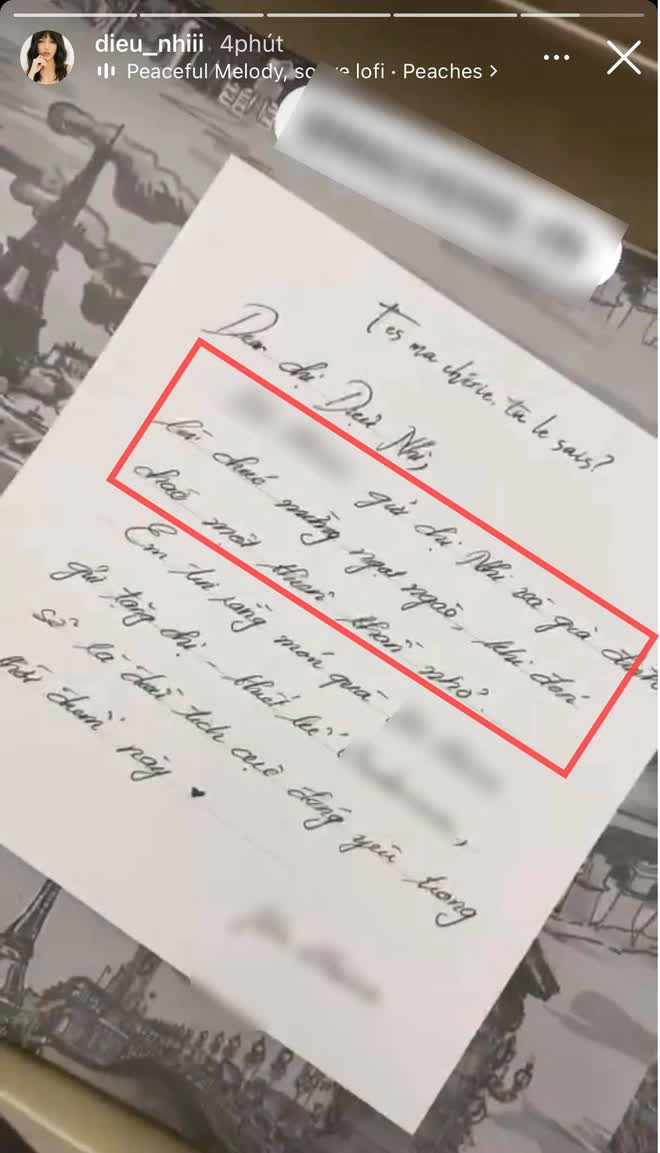 dieu_nhiii 4phút
Peaceful Melody, so e lofi · Peaches >
T'es ma chérie. tu le sais?
Dear chị Diệu Nhi,
gửi chị Nhi và gia đình
lời chúc mừng ngọt ngào, khi đón
chào một thiên thần nhỏ.
Em tin rằng món quà
gửi tặng chị - thiết kế
sẽ là dấu tích cực đáng yêu trong
thời điểm này ♥